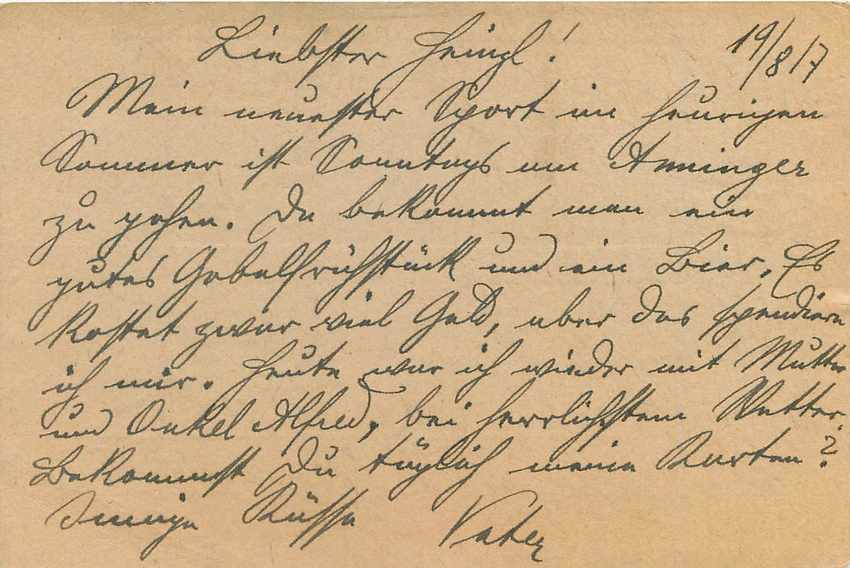 Liebster Heinzl! 19/8/17
Mein neuester Sport im heurigen
Sommer ist Sonntags am Anninger
zu gehen. Da bekommt man ein
gutes Gabelfrühstück und ein Bier. Es
kostet zwar viel Geld, aber das spendiere
ich mir. Heute war ich wieder mit Mutter
und Onkel Alfred, bei herrlichstem Wetter.
Bekommst Du täglich meine Karten?
Innige Küsse Vater